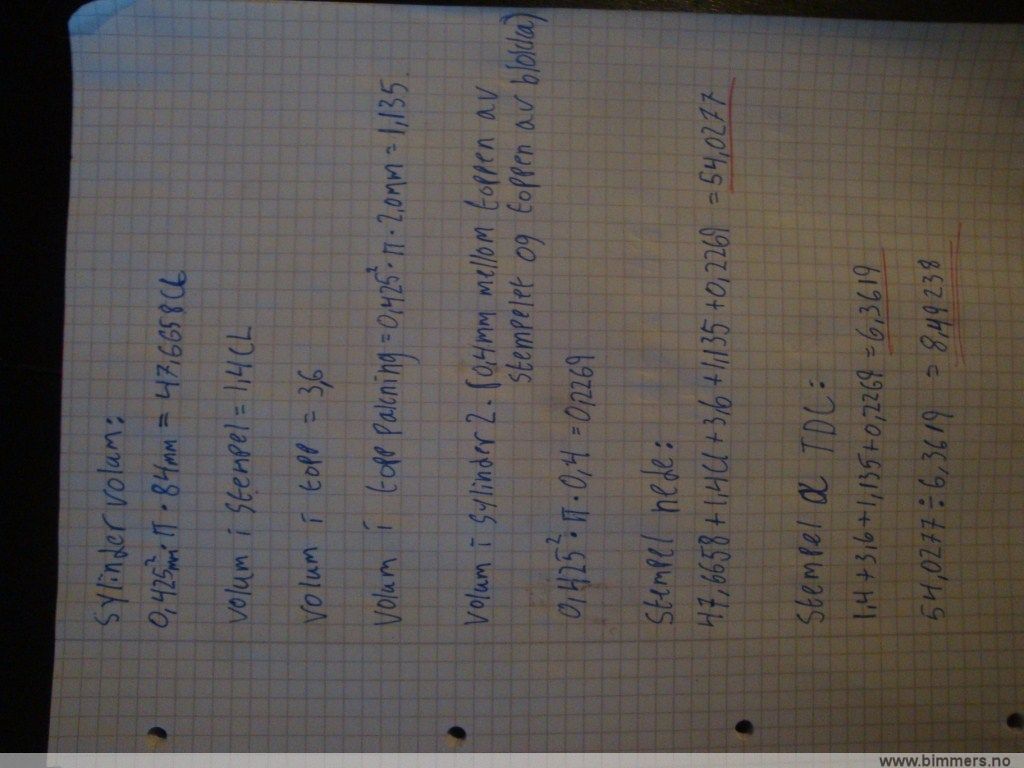 Sylinder volum:
0,425²mm · π · 84mm = 47,6658CL
volum i stempel = 1,4CL
volum i topp = 3,6
volum i topp pakning = 0,425² · π · 2.0mm = 1,135
volum i sylinder 2. (0,4mm mellom toppen av
stempelet og toppen av blokka)
0,425² · π · 0,4 = 0,2269
Stempel nede:
47,6658 + 1,4Cl + 3,6 + 1,135 + 0,2269 = 54,0277
Stempel TDC:
1,4 + 3,6 + 1,135 + 0,2269 = 6,3619
54,0277 ÷ 6,3619 = 8,49238
www.bimmers.no